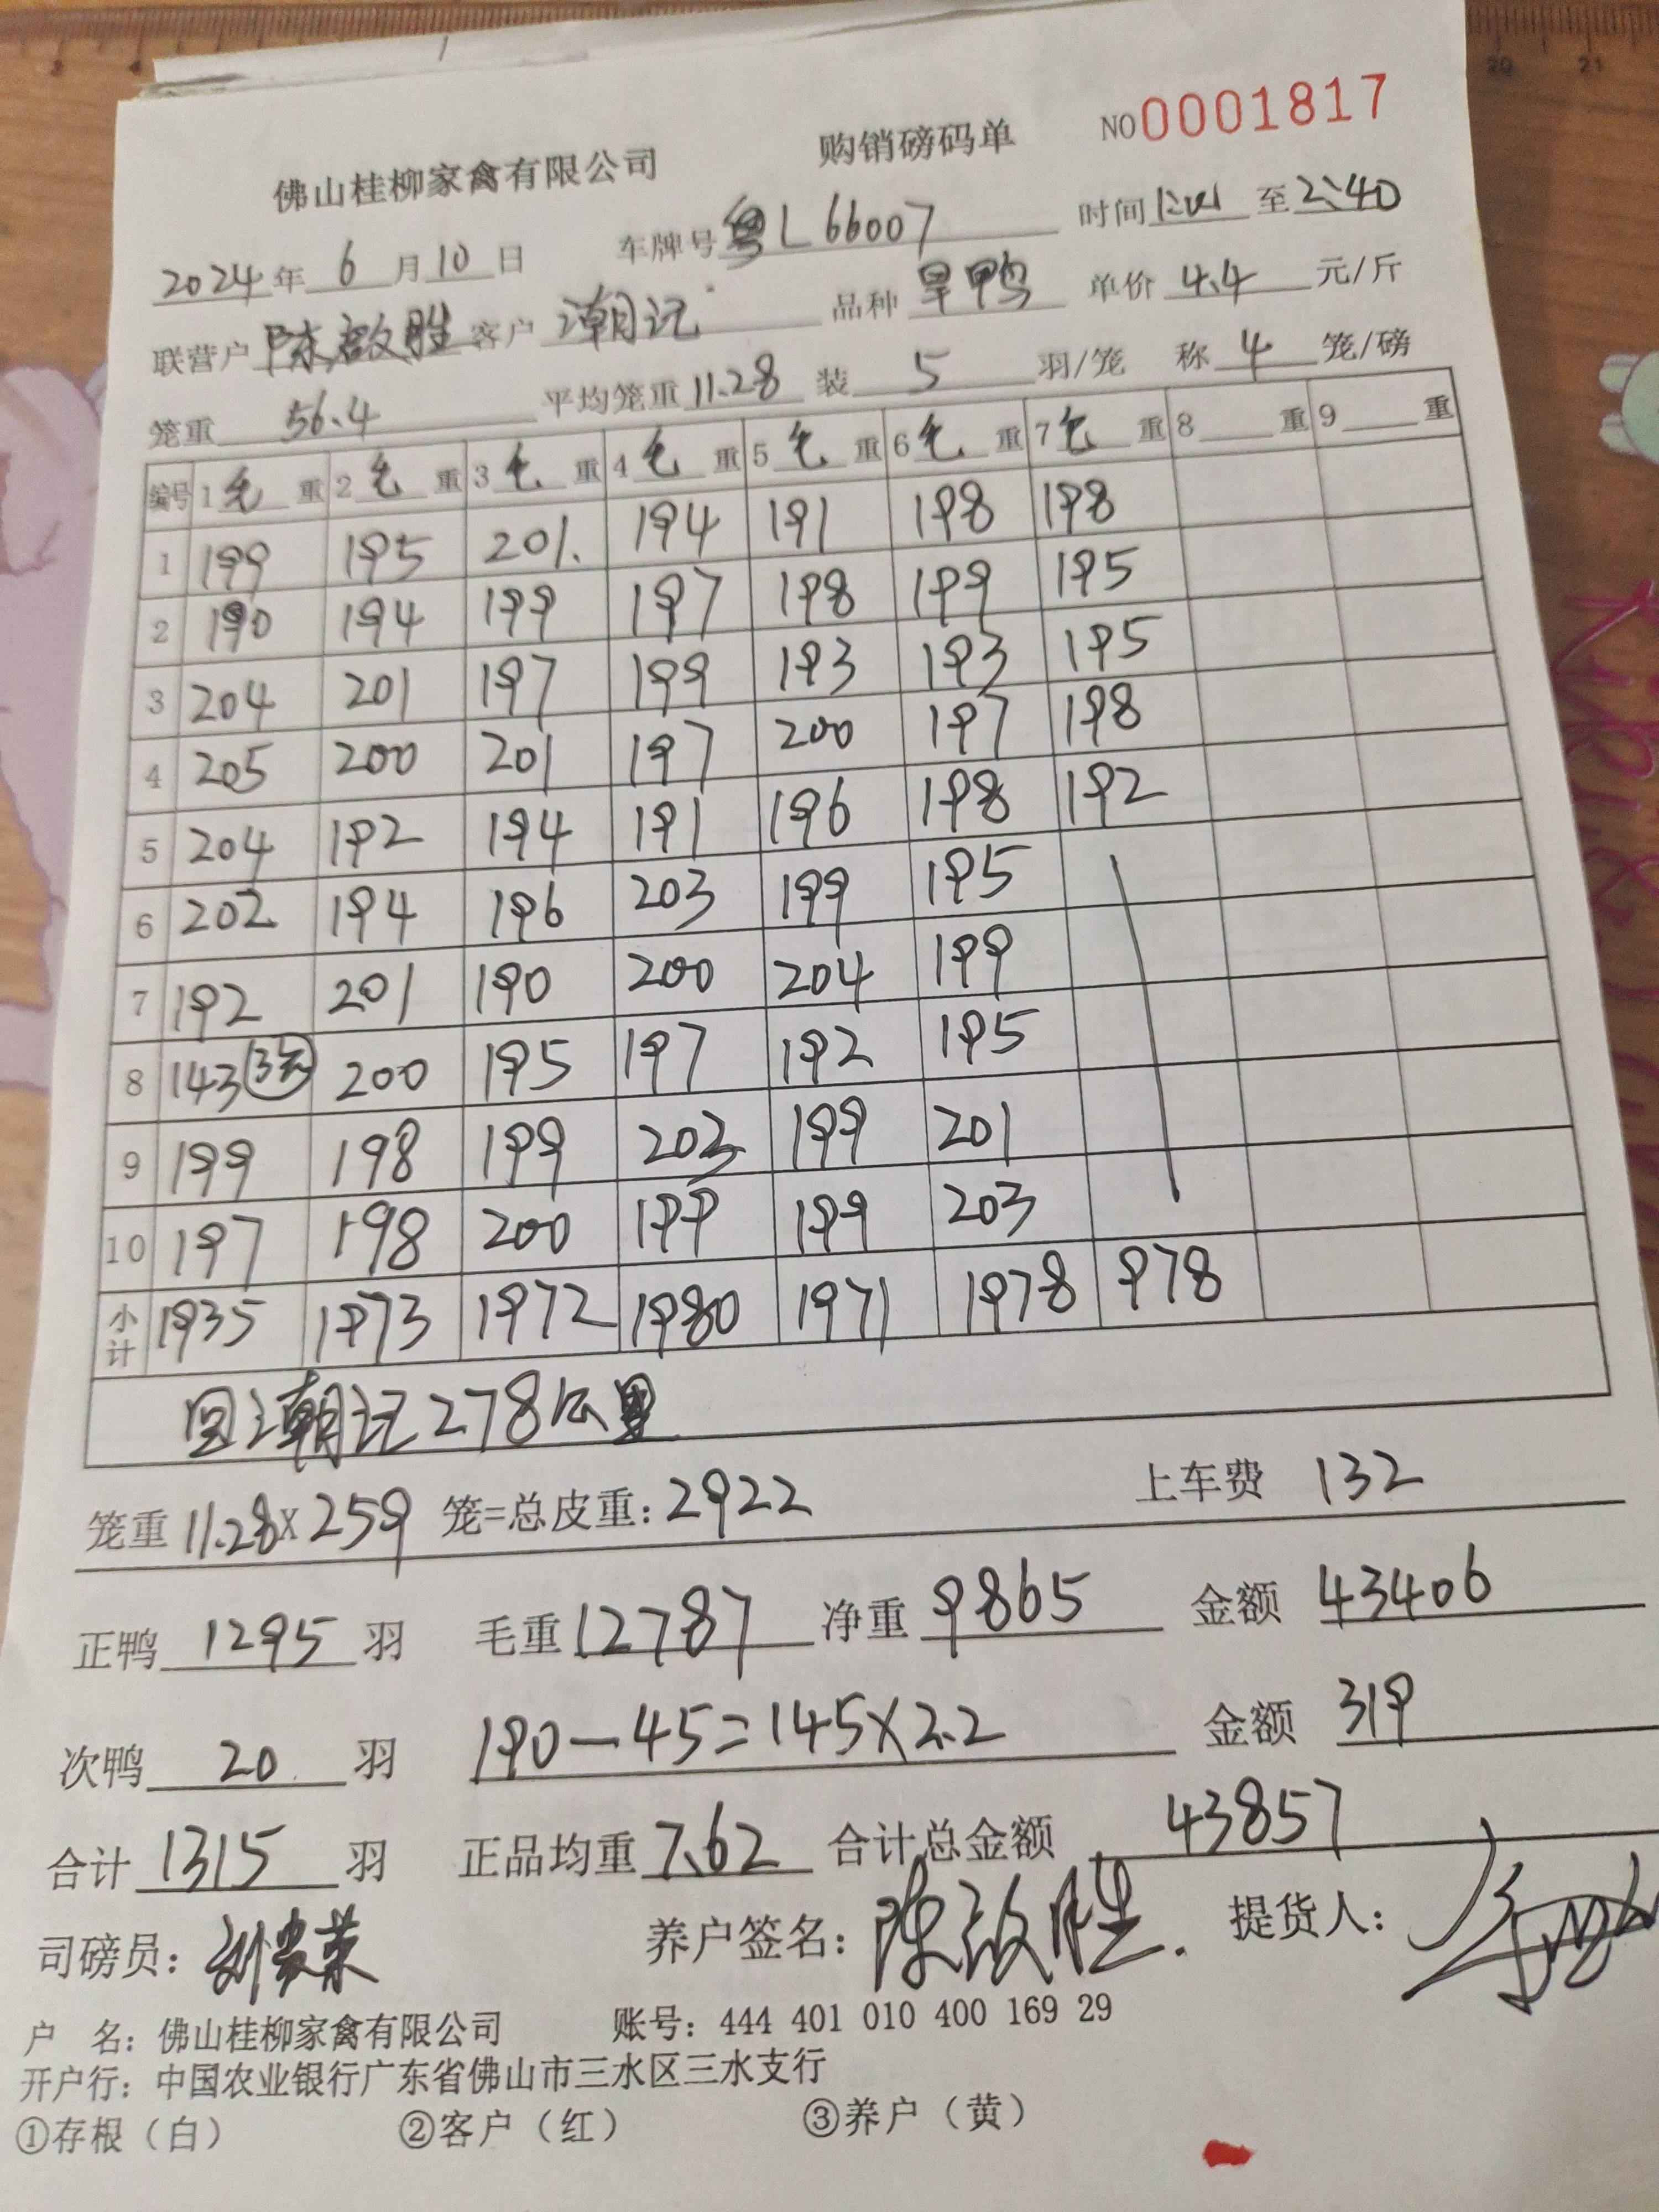 佛山桂柳家禽有限公司 购销磅码单 NO 0001817
2024 年 6 月 10 日 车牌号 粤L66007 时间 至 2:40
联营户 陈啟胜 客户 潮记 品种 旱鸭 单价 4.4 元/斤
笼重 56.4 平均笼重 11.28 装 5 羽/笼 称 4 笼/磅
编号 1 毛 重 2 毛 重 3 毛 重 4 毛 重 5 毛 重 6 毛 重 7 毛 重 8 重 9 重
1 199 195 201. 194 191 198 198
2 190 194 199 197 198 199 195
3 204 201 197 199 193 193 195
4 205 200 201 197 200 197 198
5 204 192 194 191 196 198 192
6 202 194 196 203 199 195
7 192 201 190 200 204 199
8 143 200 195 197 192 195
9 199 198 199 203 199 201
10 197 198 200 199 199 203
小计 1935 1973 1972 1980 1971 1978 978
回潮记278公里
笼重 11.28 X 259 笼=总皮重: 2922 上车费 132
正鸭 1295 羽 毛重 12787 净重 9865 金额 43406
次鸭 20 羽 190-45=145×2.2 金额 319
合计 1315 羽 正品均重 7.62 合计总金额 43857
司磅员: 养户签名: 陈啟胜. 提货人:
户 名: 佛山桂柳家禽有限公司 账号: 444 401 010 400 169 29
开户行: 中国农业银行广东省佛山市三水区三水支行
①存根（白） ②客户（红） ③养户（黄）
20 21